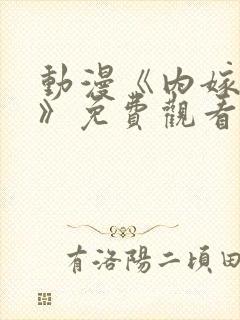 動漫《內嫁
》免費觀看
有洛陽二頃田